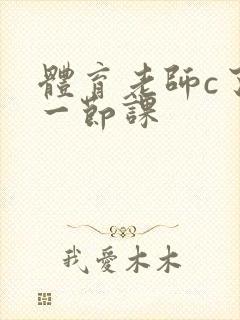 體育老師c了
一節課
我愛木木